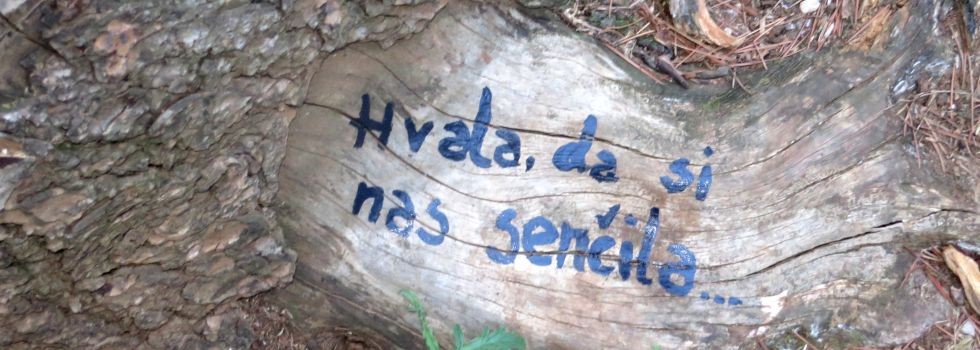 Hvala, da si
nas senčila...